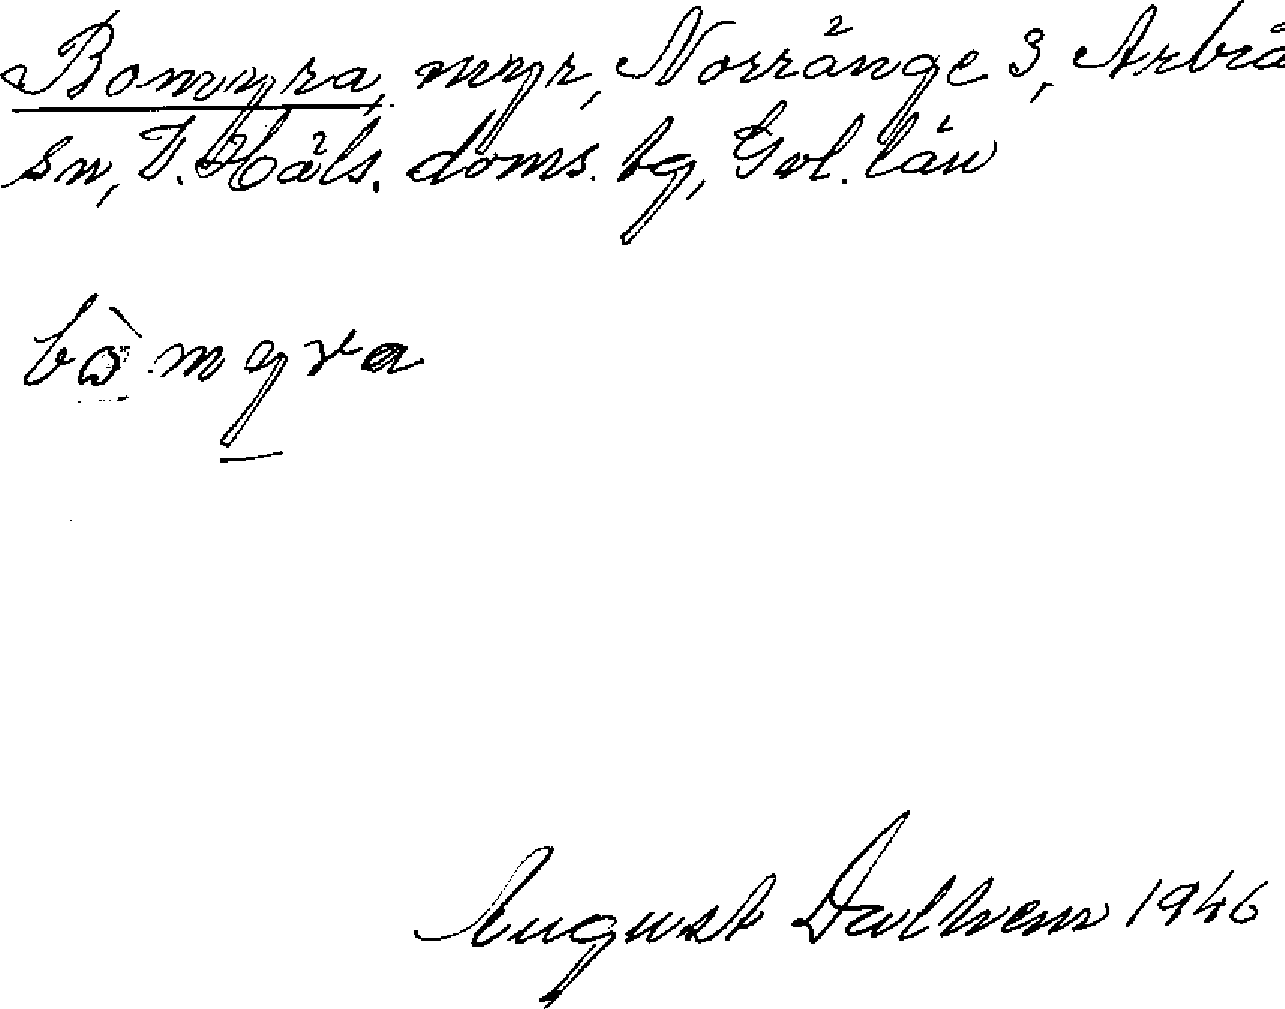 Bomyra, myr, Norränge 3, Arbrå
sn, V. Häls. doms. tg, Gvl. län
bòmyra
August Dalhem 1946